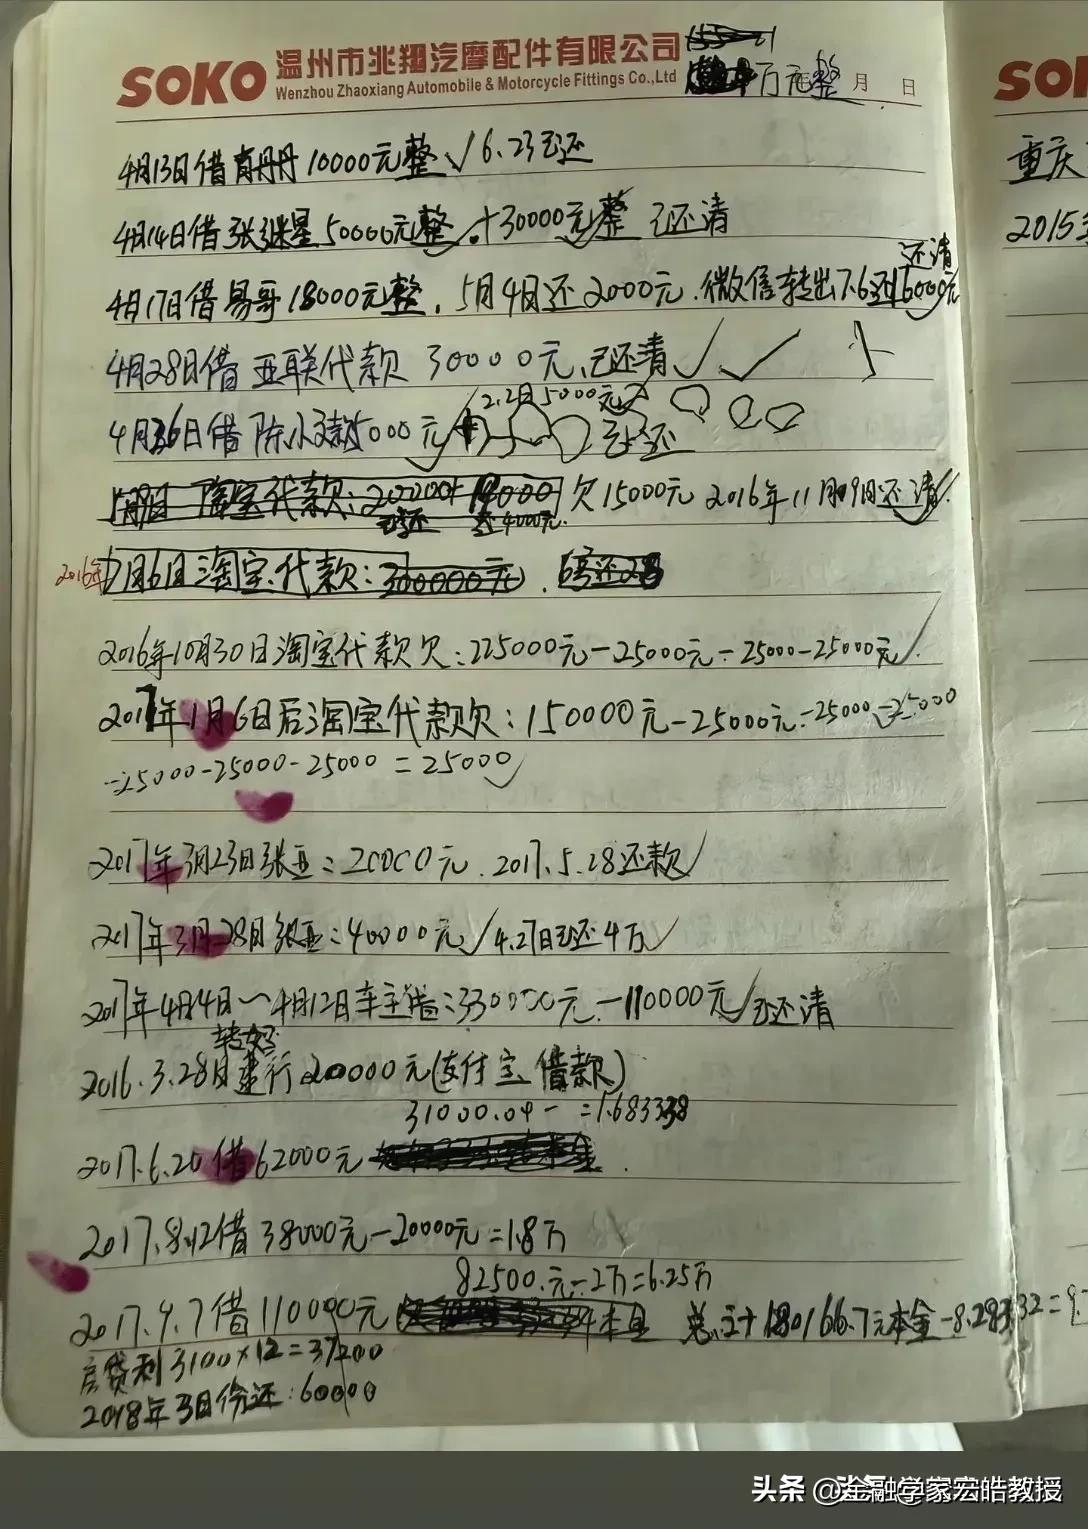 SOKO 温州市兆翔汽摩配件有限公司
Wenzhou Zhaoxiang Automobile & Motorcycle Fittings Co.,Ltd
万元整 月 日
SOK
4月13日借肖丹丹10000元整√6.23已还
重庆
4月14日借张继星50000元整√+30000元整 已还清
2015
还清
4月17日借易哥18000元整,5月4日还2000元.微信转出7.6还16000元
4月28日借亚联代款30000元,已还清√√
2.2日5000元
4月26日借陈小文款5000元 已还
淘宝代款:200000+ 欠15000元 2016年11月9日还清
已还 还4000元.
2016年7月6日淘宝代款:300000元.
2016年10月30日淘宝代款欠:225000元-25000元-25000-25000元√
2017年1月6日后淘宝代款欠:150000元-25000元-25000-25000
-25000-25000-25000=25000√
2017年3月23日张亚:20000元.2017.5.28还款√
2017年3月28日张亚:40000元√4.27日已还4万√
2017年4月4日~4月12日车主借:330000元-110000元√已还清
2016.3.28日建行200000元(支付宝借款)
31000.04- =1.683338
2017.6.20借62000元
2017.8.12借38000元-20000元=1.8万
82500.元-2万=6.25万
2017.9.7借110000元 总计180166.7元本金-8.28332=9.
房贷利3100×12=37200
2018年3月份还:60000
头条 @金融学家宏皓教授